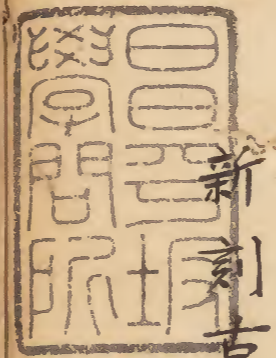 新刻
昌平坂
學問所